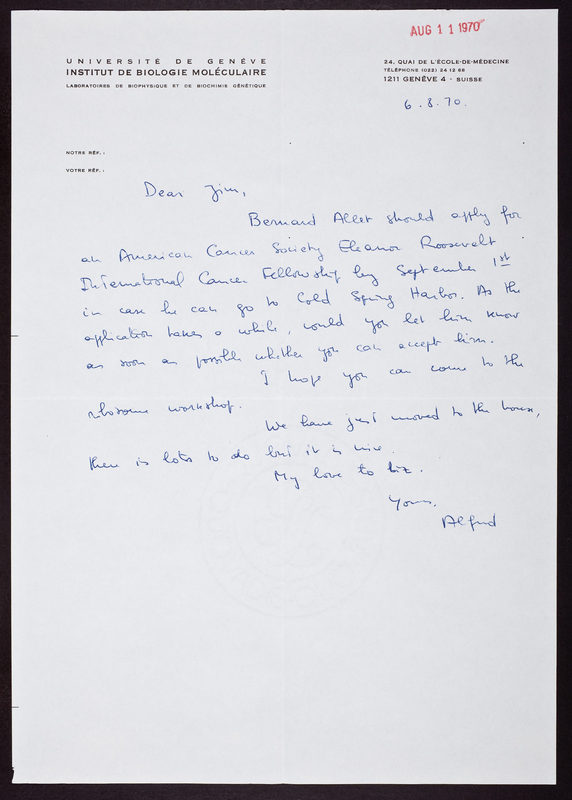 AUG 11 1970
UNIVERSITÉ DE GENÈVE
INSTITUT DE BIOLOGIE MOLÉCULAIRE
LABORATOIRES DE BIOPHYSIQUE ET DE BIOCHIMIE GÉNÉTIQUE
24, QUAI DE L'ÉCOLE-DE-MÉDECINE
TÉLÉPHONE (022) 24 12 68
1211 GENÈVE 4 - SUISSE
6.8.70.
NOTRE RÉF. :
VOTRE RÉF. :
Dear Jim,
Bernard Allet should apply for
an American Cancer Society Eleanor Roosevelt
International Cancer Fellowship by September 1st
in case he can go to Cold Spring Harbor. As the
application takes a while, would you let him know
as soon as possible whether you can accept him.
I hope you can come to the
ribosome workshop.
We have just moved to the house,
there is lots to do but it is nice.
My love to Liz.
Yours,
Alfred